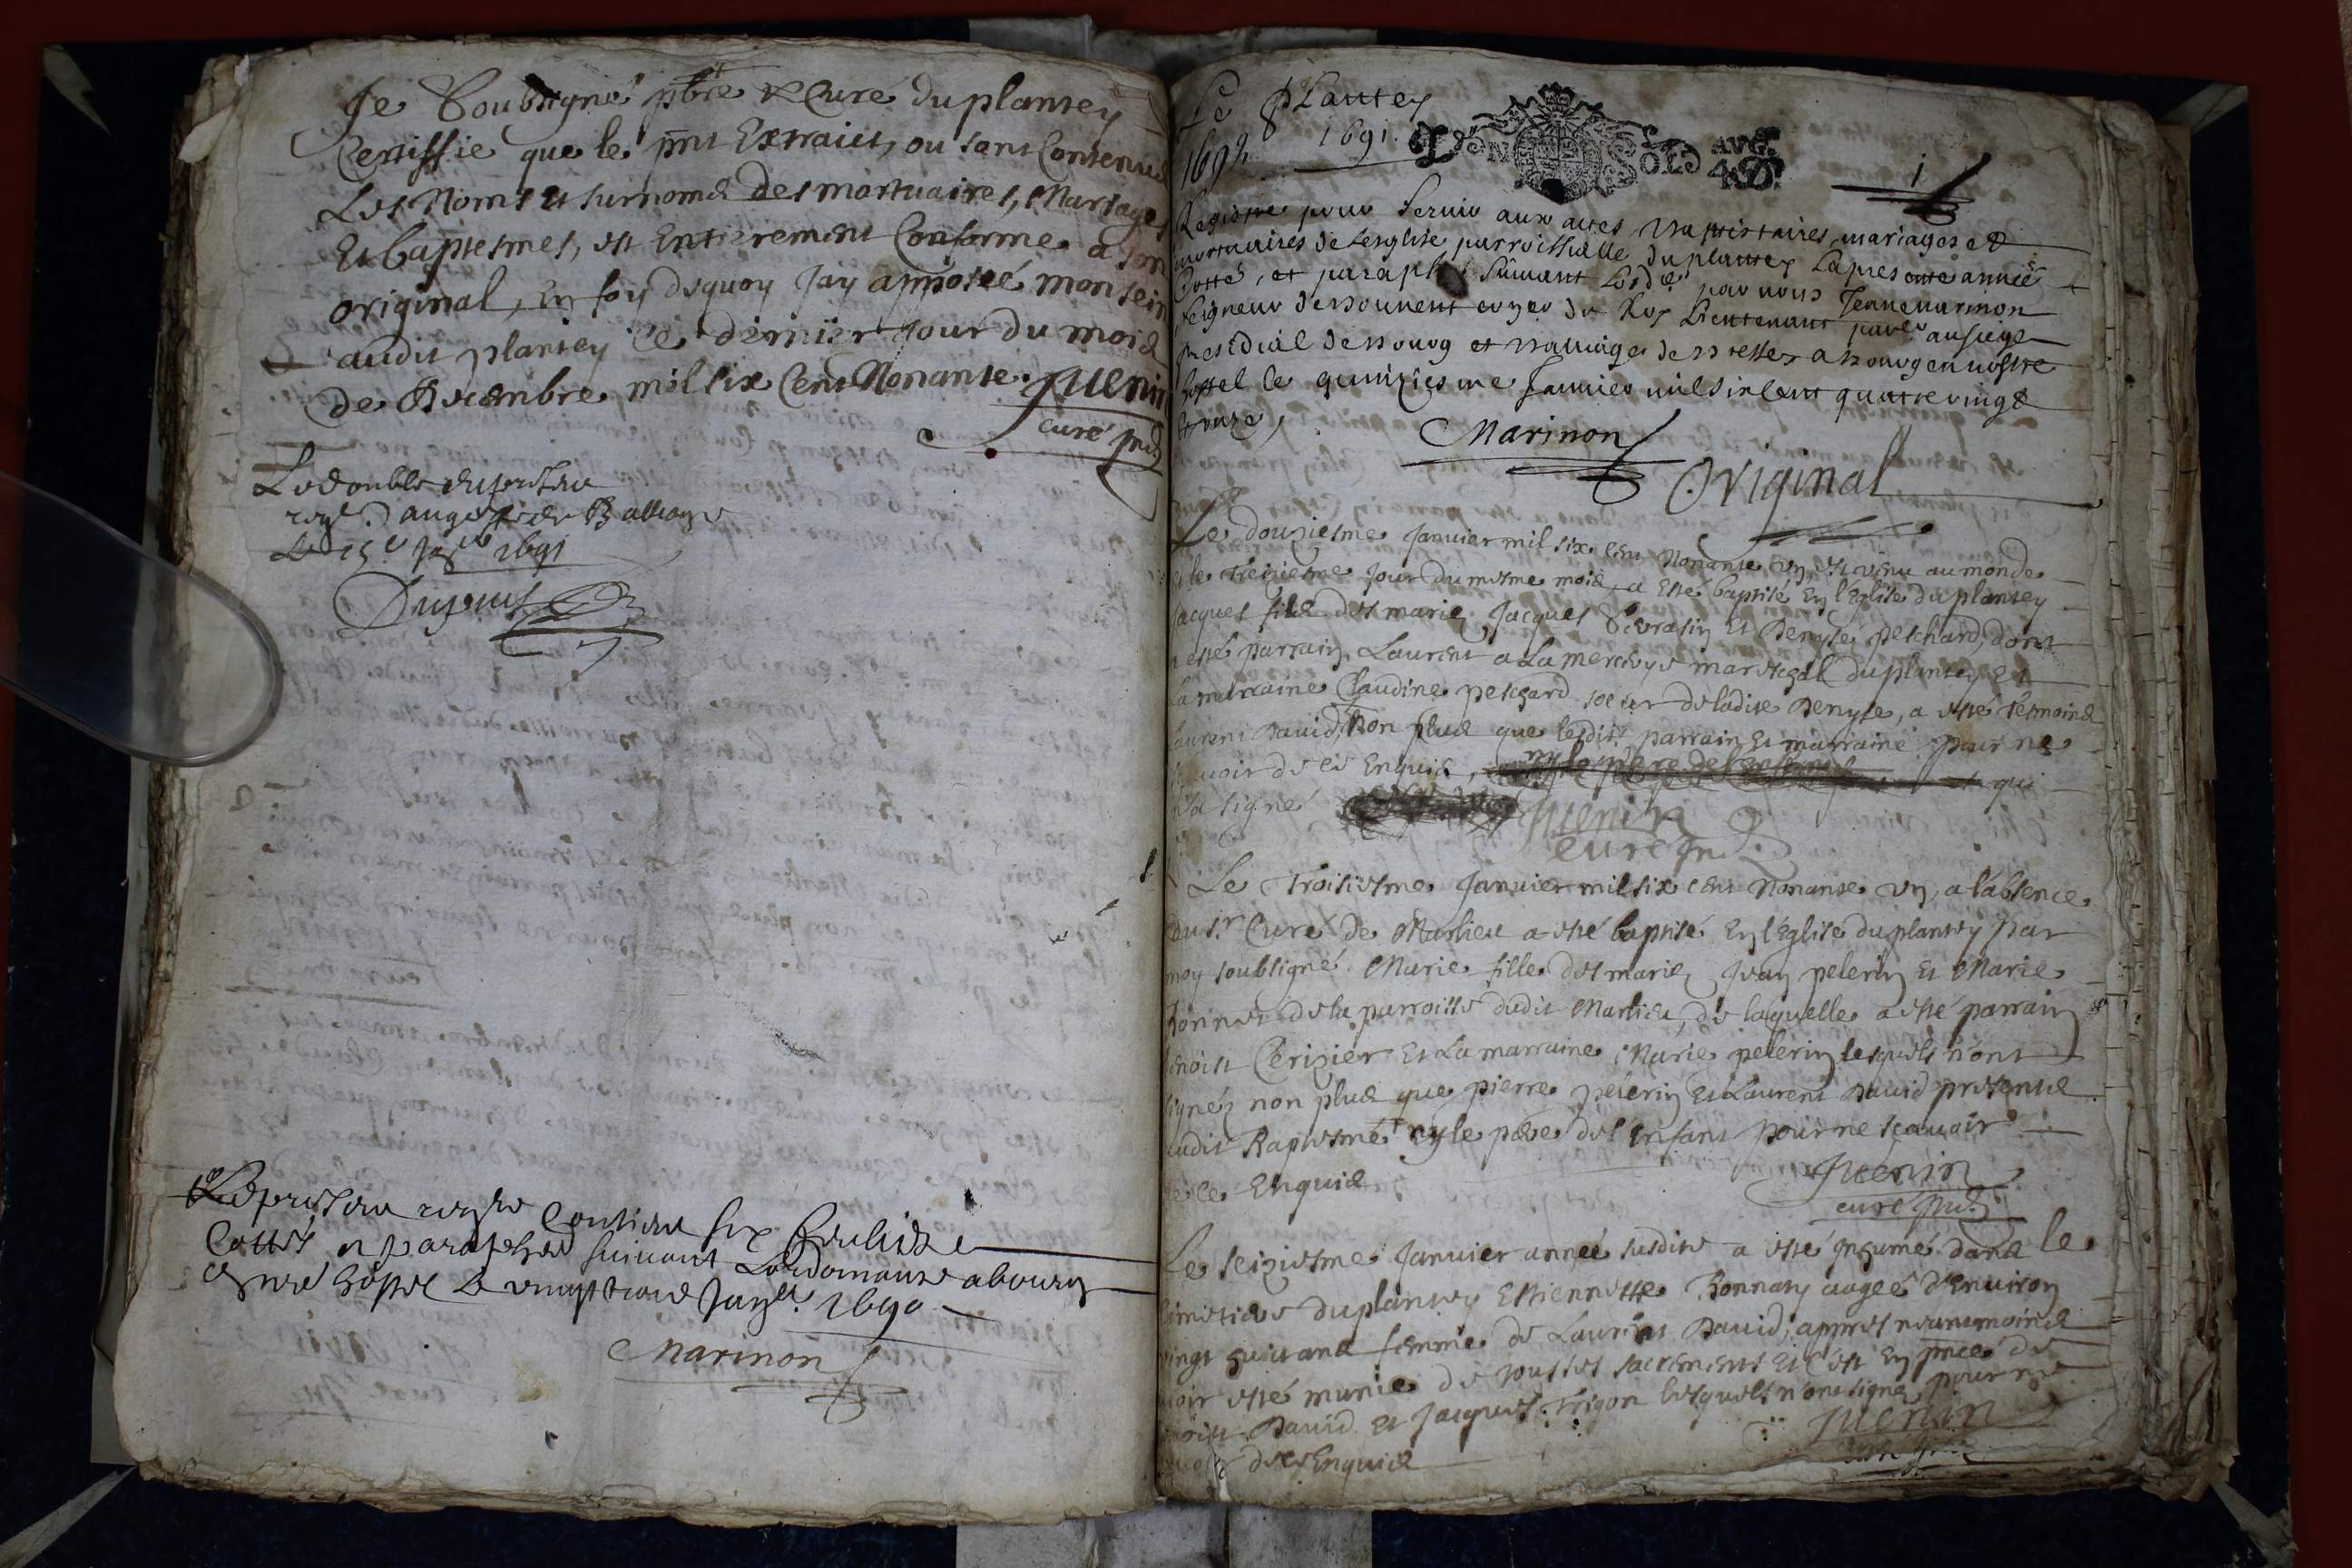 Je Soubsigné pbre & Curé du plantey
Certiffie que le pnt Extraict, ou sont Contenus
Les Noms et surnoms des mortuaires, Mariages
Et baptesmes, est Entierement Conforme a son
original, En foy dequoy Jay apposeé mon sein
audit plantey le dernier Jour du mois
de Decembre mil six Cent Nonante. Juenin
curé
Le double du
1691
Dupuis
Le present contient six feulietz
Cottés et paraphes suivant Lordonnance a bourg
en nre hostel Le vingt trois Janer. 1690
Marinon
Le plantey
1691.
LYON SOLS AVG.
1
Registre pour servir aux actes baptistaires mariages et
mortuaires de lesglise parroissialle du plantey La pres ante année
Cotté, et paraphé suivant Lordce par nous Jenne marinon
seigneur conger du Roy Lieutenant au siege
presidial de bourg et a bourg en nostre
hostel le quinziesme Janvier mil six cent quatre vingt
et onze,
Marinon
Original
Le douziesme Janvier mil six cent Nonante un, est venu au monde
et le treiziesme Jour du mesme mois, a esté baptisé En l'Eglise du plantey
Jacques fils des mariez Jacques et Denyse peschard, dont
a esté parrain Laurent a La mareschal du plantey Et
La marraine Claudine peschard soeur de ladite Denyse, a esté tesmoins
Laurent David, Non plus que lesdits parrain Et marraine pour ne
scavoir de ce Enquis, ny le pere de l'enfant qui
n'a signé Juenin
curé
Le Troisiesme Janvier mil six cent Nonante un, a l'absence
du sr Curé de Marlieu a esté baptisé En l'Eglise du plantey par
moy soubsigné Marie fille des mariez Jean pelerin Et Marie
bonnet de la parroisse dudit Marlieu, de laquelle a esté parrain
benoist Cerizier Et La marraine Marie pelerin lesquels n'ont
signéz non plus que pierre pelerin Et Laurent David presents
audit Baptesme ny le pere de l'enfant pour ne scavoir
de ce Enquis Juenin
curé
Le seiziesme Janvier année susdite a esté Inhumé dans le
cimetiere du plantey Estiennette Bonnaty aageé d'Environ
vingt huict ans femme de Laurent David, apprest neantmoins
avoir esté munie de tous les sacrements Et c'est En pnce de
benoist David et Jacques Trigon lesquels n'ont signez pour ne
scavoir de ce Enquis Juenin